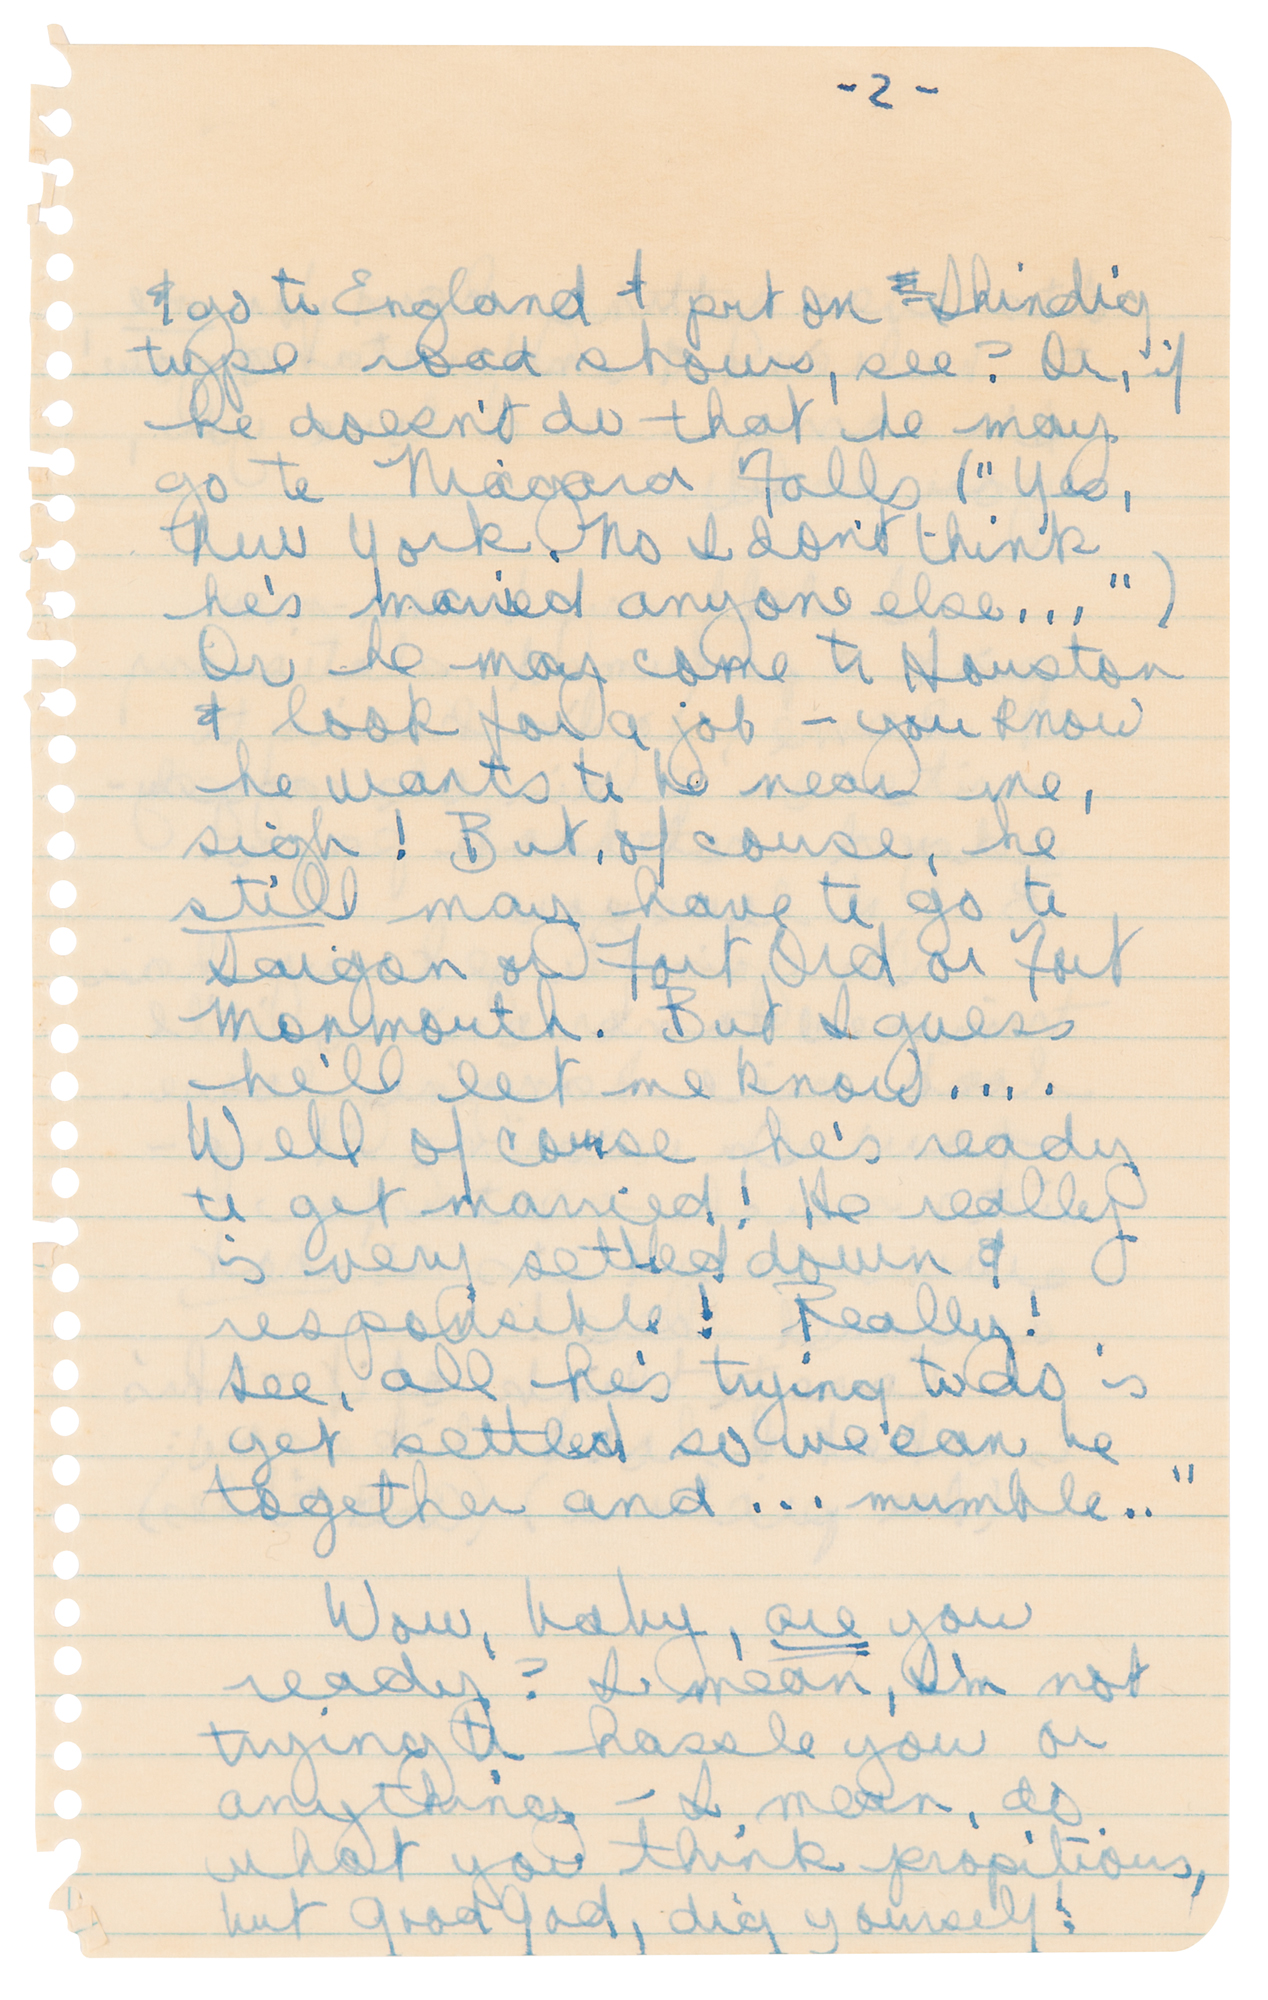 -2-
& go to England & put on Shindig
type road shows, see? Or, if
he doesn't do that he may
go to Niagara Falls ("Yes,
New York. No I don't think
he's married anyone else...")
Or he may come to Houston
& look for a job - you know
he wants to be near me,
sigh! But, of course, he
still may have to go to
Saigon or Fort Ord or Fort
Monmouth. But I guess
he'll let me know....
Well of course he's ready
to get married! He really
is very settled down &
responsible! Really!
See, all he's trying to do is
get settled so we can be
together and ... mumble.."
Wow, baby, are you
ready? I mean, I'm not
trying to hassle you or
anything - I mean, do
what you think propitious,
but good God, dig yourself!